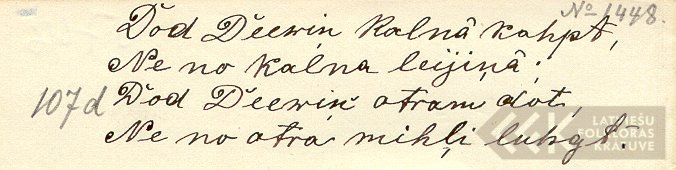 № 1448.
Dod Deewiņ kalnâ kahpt,
Ne no kalna leijiņâ;
107d Dod Deewiņ otram dot,
Ne no otra mihļi luhgt.
LATVIEŠU
FOLKLORAS
KRĀTUVE